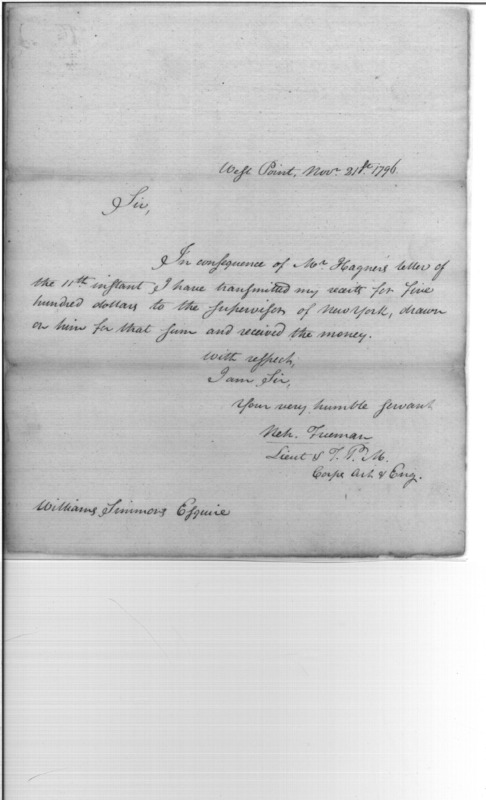 West Point, Novr. 21st. 1796.
Sir,
In consequence of Mr Hagners letter of
the 11th instant I have transmitted my receits for five
hundred dollars to the supervisor of New York, drawn
on him for that sum and received the money.
With respect,
I am Sir,
Your very humble servant
Neh. Freeman
Lieut & T. P. M.
Corps Art & Eng.
Williams Simmons Esquire